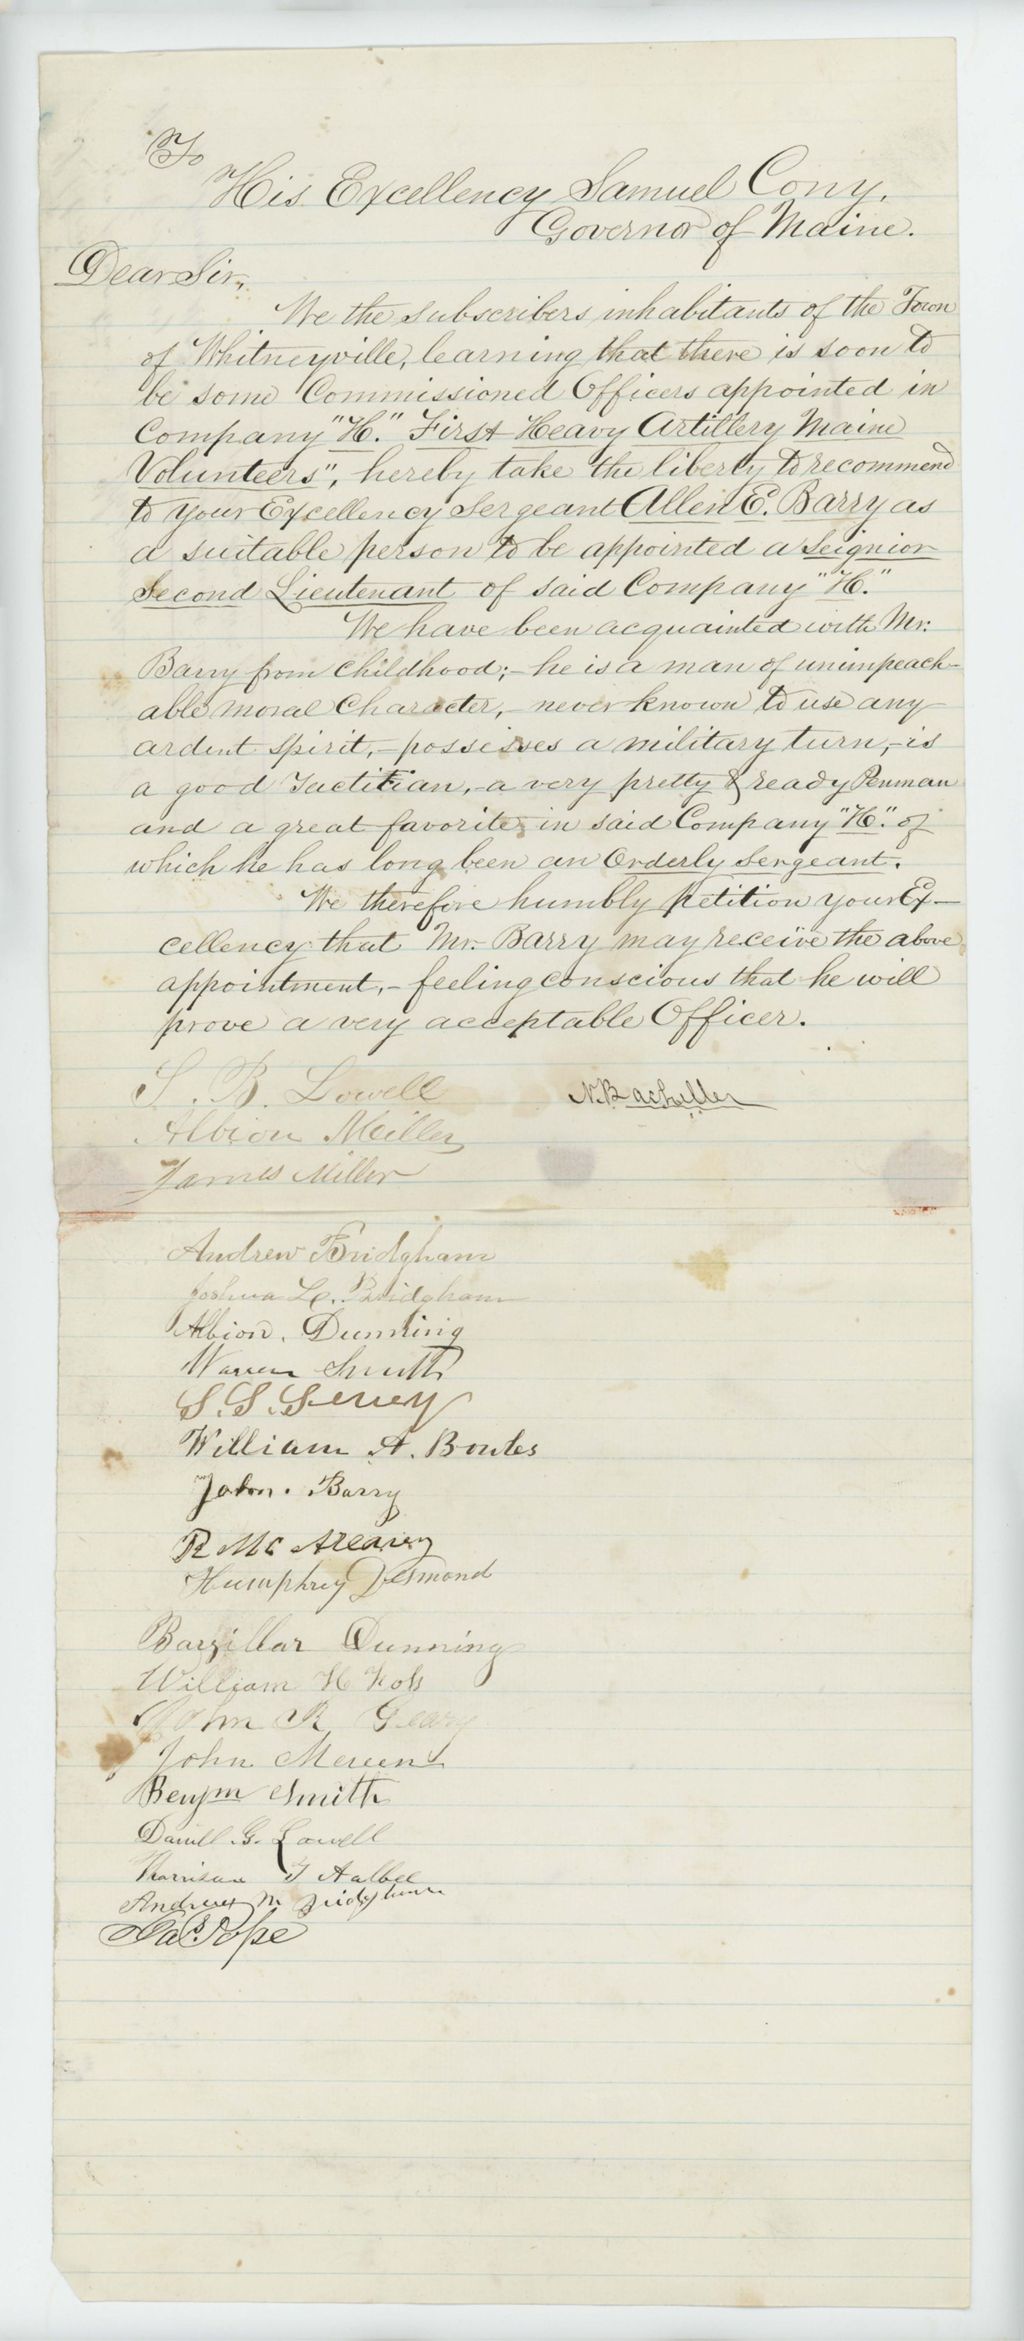 To
His Excellency Samuel Cony,
Governor of Maine.
Dear Sir,
We the subscribers inhabitants of the Town
of Whitneyville, learning that there is soon to
be some Commissioned Officers appointed in
Company "H." First Heavy Artillery Maine
Volunteers", hereby take the liberty to recommend
to your Excellency Sergeant Allen E. Barry as
a suitable person to be appointed a Seignior
Second Lieutenant of said Company "H."
We have been acquainted with Mr.
Barry from childhood;- he is a man of unimpeach-
able moral Character,- never known to use any
ardent spirit,- possesses a military turn,- is
a good Tactitian,- a very pretty & ready Penman
and a great favorite, in said Company "H." of
which he has long been an Orderly Sergeant.
We therefore humbly petition your Ex-
cellency that Mr. Barry may receive the above
appointment,- feeling conscious that he will
prove a very acceptable Officer.
S. B. Lowell
N. Bacheller
Albion Miller
James Miller
Andrew Bridgham
Joshua L. Bridgham
Albion. Dunning
Warren Smith
S. S. Seney
William A. Bowles
John. Barry
R Mc Aleavey
Humphrey Desmond
Barzillar Dunning
William H Foss
John R Geary
John Mereen
Benjm Smith
Daniell G. Lowell
Harrison T Halbee
Andrew M Bridgham
Jas. Pope